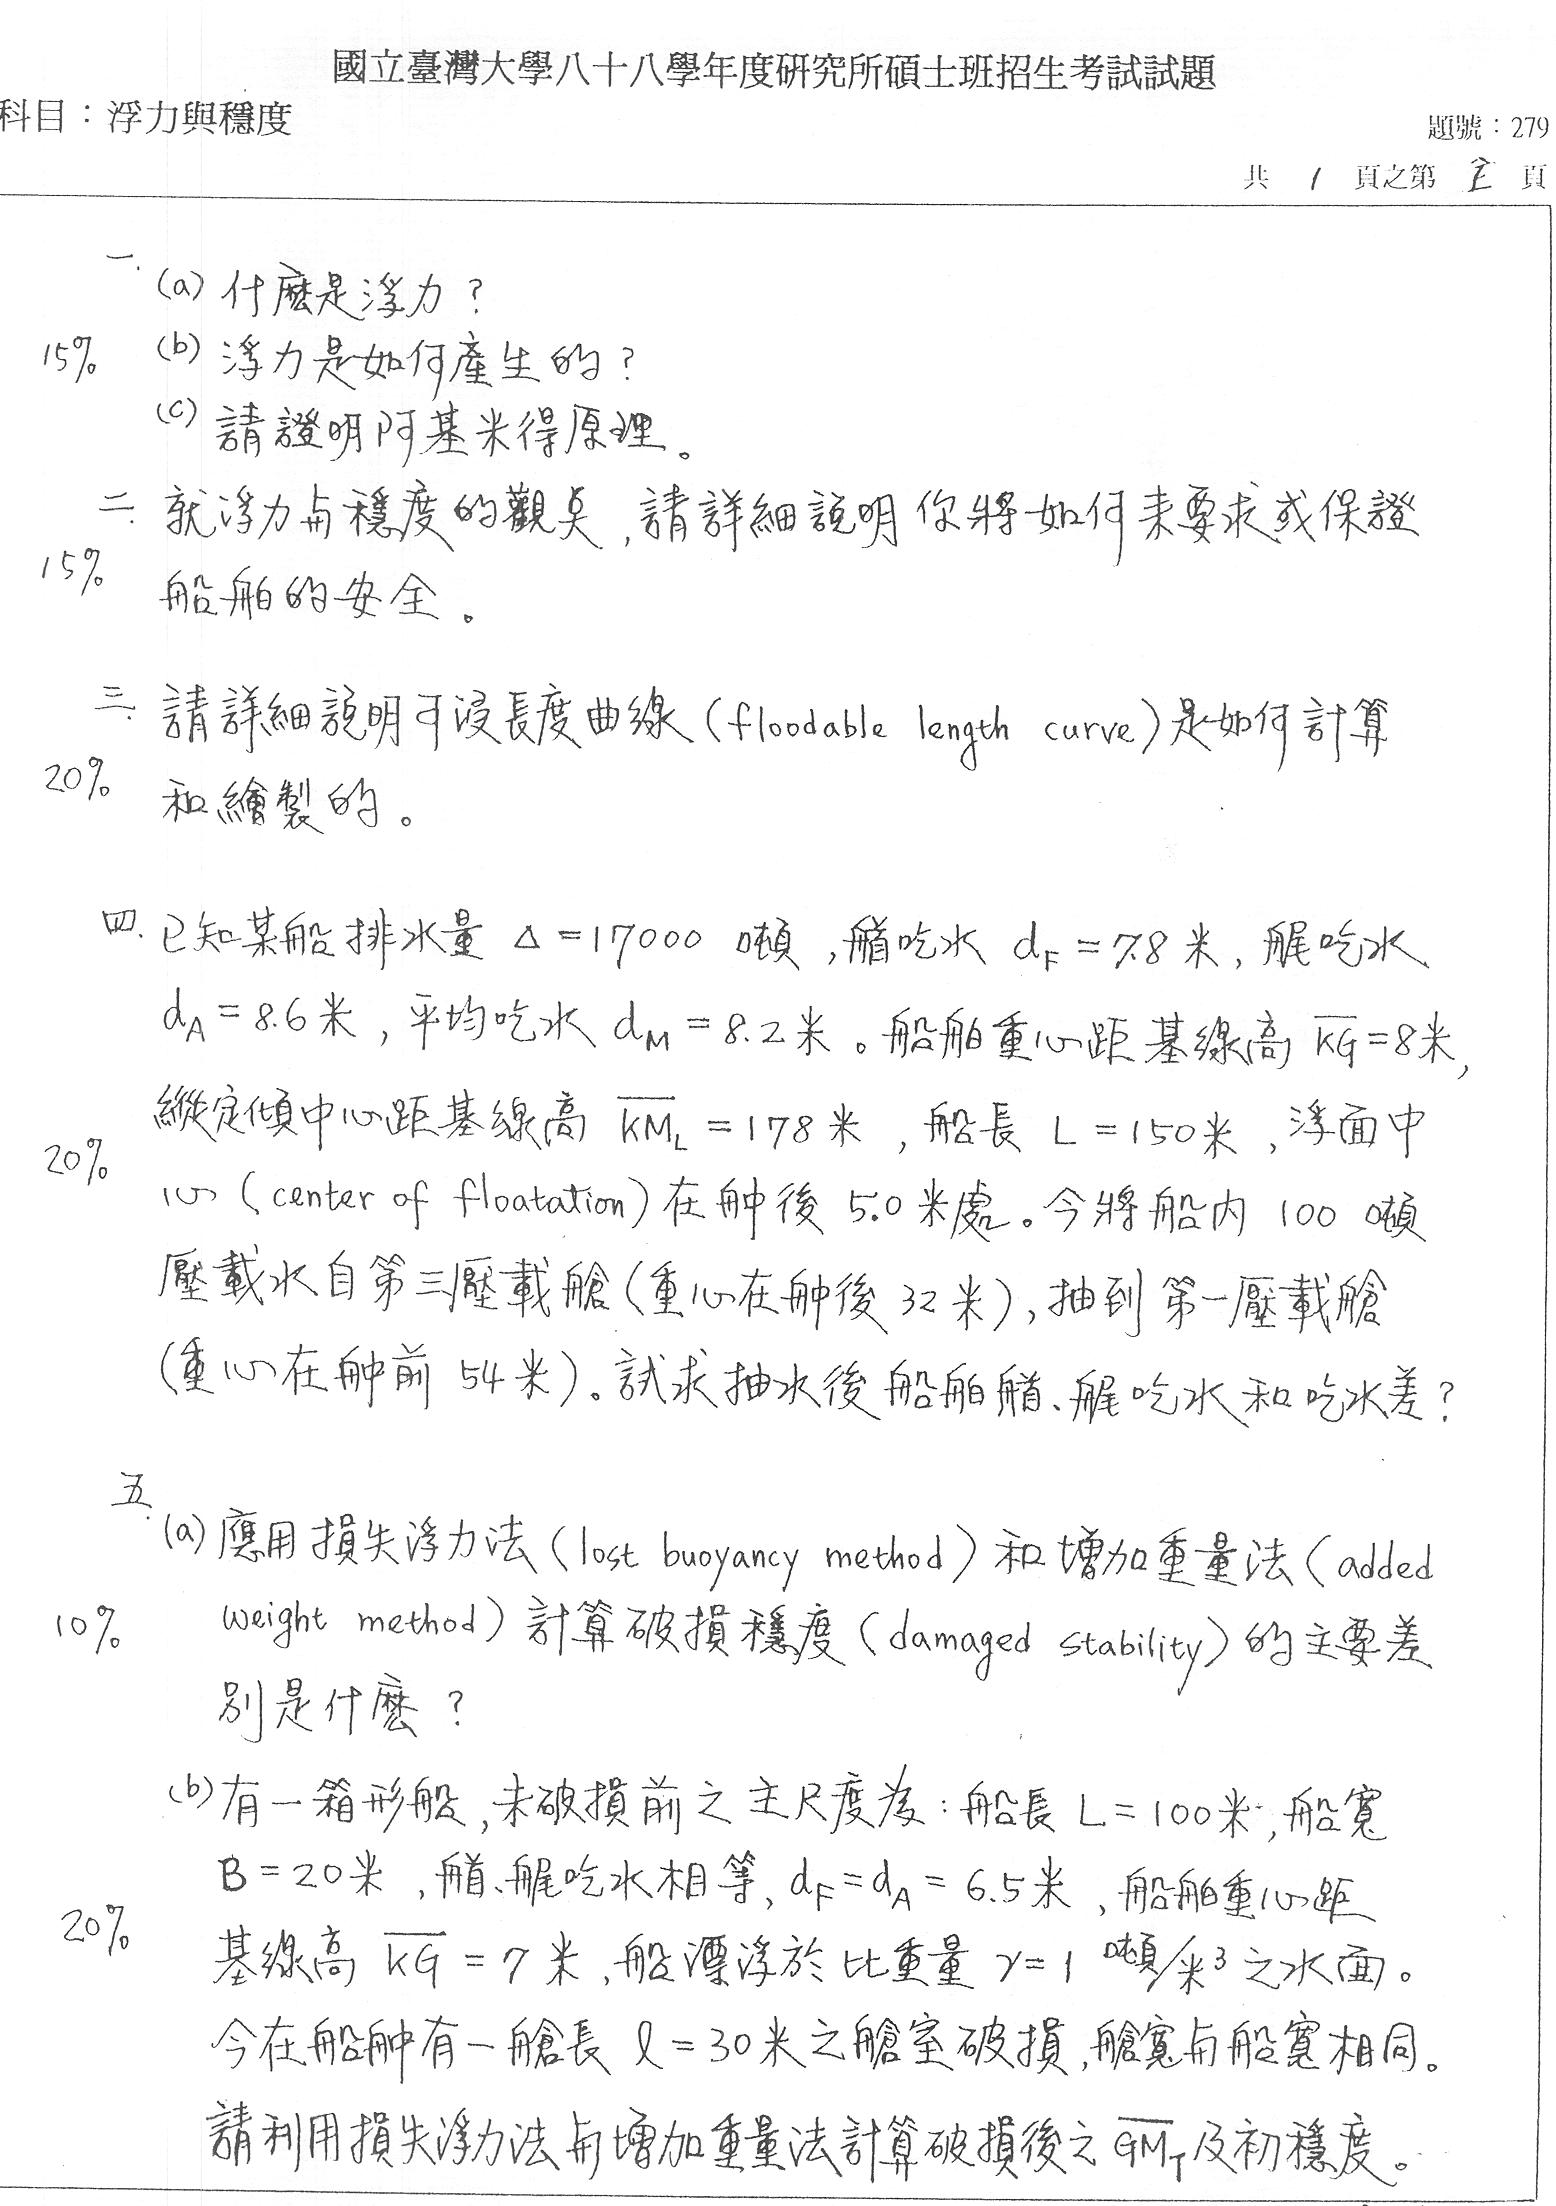 國立臺灣大學八十八學年度研究所碩士班招生考試試題
科目：浮力與穩度
題號：279
共 1 頁之第 全 頁
一. (a) 什麼是浮力？
15% (b) 浮力是如何產生的？
(c) 請證明阿基米得原理。
二. 就浮力與穩度的觀點，請詳細說明你將如何來要求或保證
15% 船舶的安全。
三. 請詳細說明可浸長度曲線（floodable length curve）是如何計算
20% 和繪製的。
四. 已知某船排水量 Δ=17000 噸，艏吃水 dF=7.8米，艉吃水
dA=8.6米，平均吃水 dM=8.2米。船舶重心距基線高 K̅G̅=8米，
縱定傾中心距基線高 K̅M̅L=178米，船長 L=150米，浮面中
20% 心（center of floatation）在舯後 5.0米處。今將船內 100 噸
壓載水自第三壓載艙（重心在舯後 32米），抽到第一壓載艙
（重心在舯前 54米）。試求抽水後船舶艏、艉吃水和吃水差？
五. (a) 應用損失浮力法（lost buoyancy method）和增加重量法（added
10% weight method）計算破損穩度（damaged stability）的主要差
別是什麼？
(b) 有一箱形船，未破損前之主尺度為：船長 L=100米，船寬
B=20米，艏、艉吃水相等，dF=dA=6.5米，船舶重心距
20% 基線高 K̅G̅=7米，船漂浮於比重量 γ=1 噸/米³之水面。
今在船舯有一艙長 ℓ=30米之艙室破損，艙寬與船寬相同。
請利用損失浮力法與增加重量法計算破損後之 G̅M̅T及初穩度。